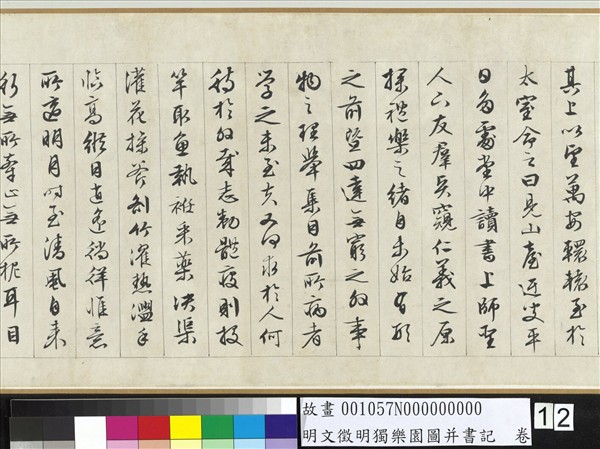 其上以望萬安轘轅至於
太室命之曰見山臺迂叟平
日多處堂中讀書上師聖
人下友羣賢窺仁義之原
探禮樂之緒自未始有形
之前暨四達無窮之外事
物之理舉集目前所病者
学之未至夫又何求於人何
待於外哉志勌體疲則投
竿取魚執衽采藥決渠
灌花操斧剖竹濯熱盥手
臨高縱目逍遙徜徉惟意
所適明月時至清風自來
行無所牽止無所柅耳目
故畫 001057N000000000
明文徵明獨樂園圖并書記 卷
12